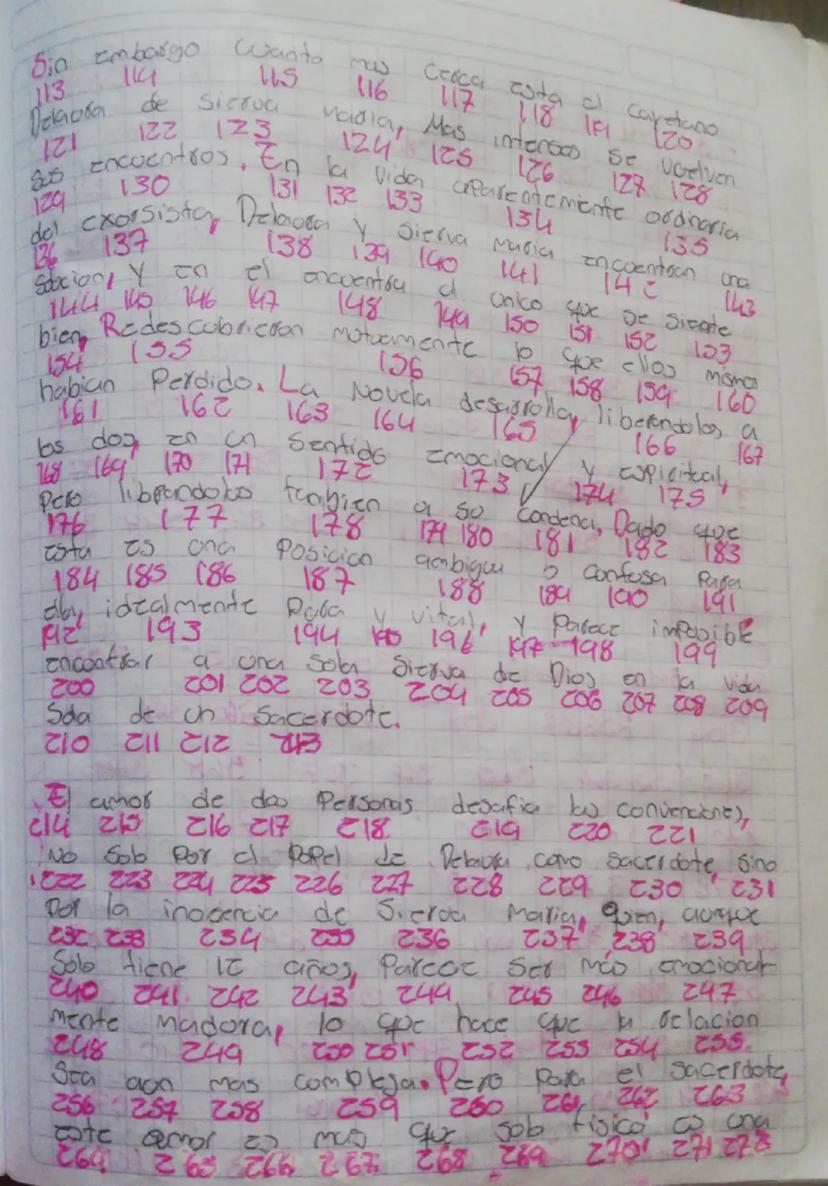 Sin embargo Cuanto mas cerca esta el Cayetano
113 114 115 116 117 118 119 120
Delaora de sierva Maria, Mas intensos se vuelven
121 122 123 124 125 126 127 128
Sus encuentros. En la vida aparentemente ordinaria
129 130 131 132 133 134 135
del exorsista, Delaora y Sierva Maria encuentran una
136 137 138 139 140 141 142 143
y en el encuentra el unico que se siente
144 145 146 147 148 149 150 151 152 153
bien, Redescubrieron motuamente lo que ellos mismo
154 155 156 157 158 159 160
habian Perdido. La Novela desarrolla, liberandolos a
161 162 163 164 165 166 167
los dos, en un sentido emocional y espiritual,
168 169 170 171 172 173 174 175
Pero liberandolos tambien a su condena. Dado que
176 177 178 179 180 181 182 183
esta es una Posicion ambigua o confusa Para
184 185 186 187 188 189 190 191
idealmente Para y vital, y Parece imposible
192 193 194 195 196 197 198 199
encontrar a una sola Sierva de Dios en la vida
200 201 202 203 204 205 206 207 208 209
Sola de un sacerdote.
210 211 212 213
El amor de dos Personas desafia las convenciones,
214 215 216 217 218 219 220 221
No solo Por el Papel de Delaora como sacerdote, sino
222 223 224 225 226 227 228 229 230 231
Por la inocencia de Sierva Maria, quien, aunque
232 233 234 235 236 237 238 239
Solo tiene 12 años, Parece ser mas emocional-
240 241 242 243 244 245 246 247
mente madora, lo que hace que la relacion
248 249 250 251 252 253 254 255
Sea aun mas compleja. Pero Para el sacerdote,
256 257 258 259 260 261 262 263
este amor es mas que solo fisico es una
264 265 266 267 268 269 270 271 272